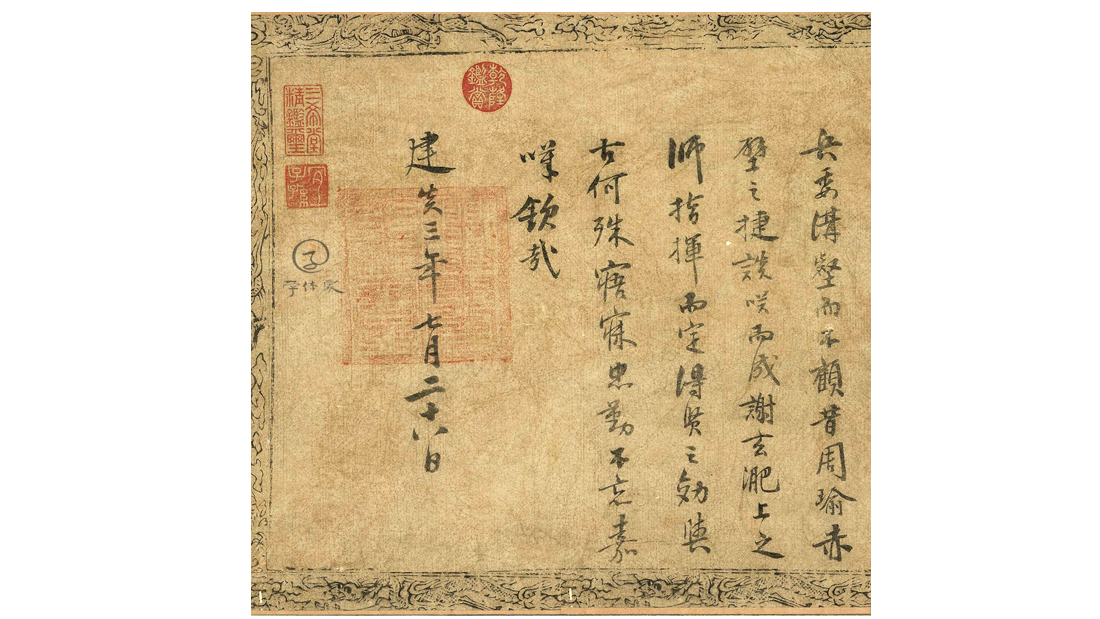 兵委溝壑而不顧昔周瑜赤
壁之捷談咲而成謝玄淝上之
師指揮而定得賢之効與
古何殊寤寐忠勤不忘嘉
嘆欽哉
建炎三年七月二十八日
乾隆鑑賞
三希堂精鑑璽
宜子孫